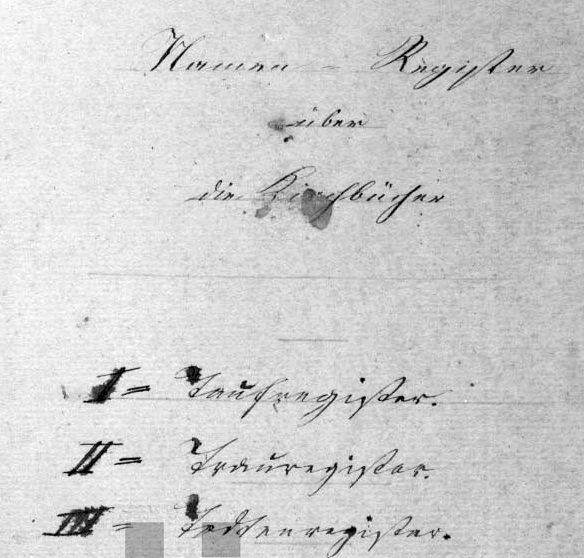 Namen - Register
über
die Kirchbücher
I = Taufregister.
II = Trauregister.
III = Todtenregister.